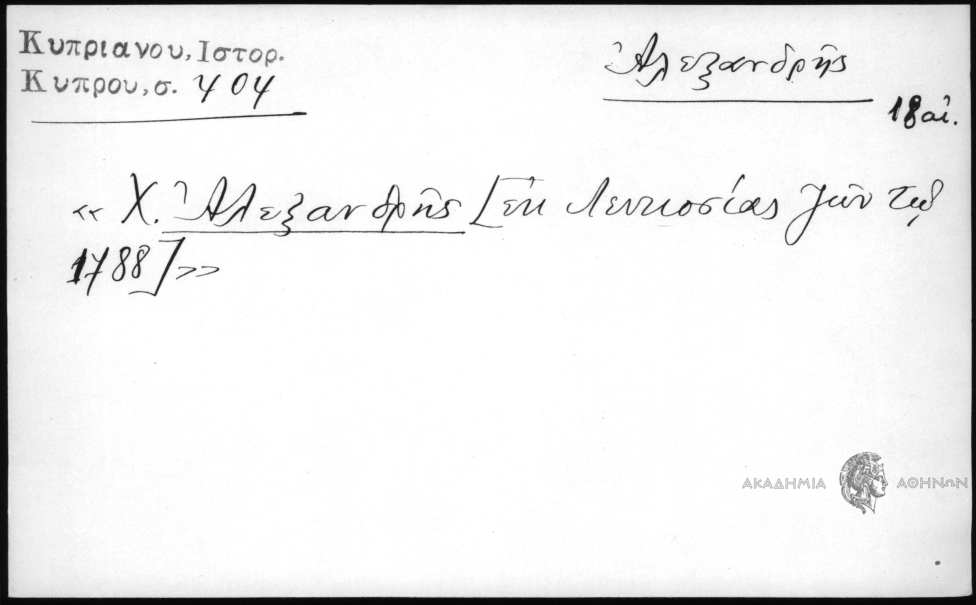 Κυπριανου, Ιστορ.
Κυπρου, σ. 404
Ἀλεξανδρῆς
18 αἰ.
« Χ. Ἀλεξανδρῆς [ἐκ Λευκοσίας ζῶν τῷ
1788] »
ΑΚΑΔΗΜΙΑ ΑΘΗΝΩΝ